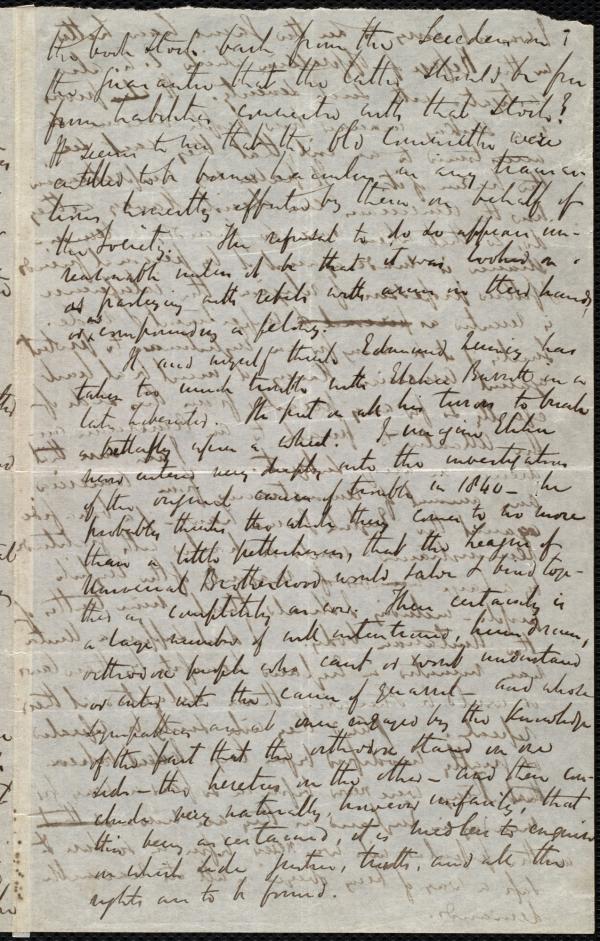 the book stock back from the Seceders on
the guarantee that the latter should be free
from liabilities connected with that stock?
It seems to me that the old Committee were
entitled to be borne harmless in any transac-
tions honestly effected by them on behalf of
the Society. The refusal to do so appears un-
reasonable unless it be that it was looked on
as parleying with rebels with arms in their hands,
or as compounding a felony.
H and myself think Edmund Quincy has
taken too much trouble with Elihu Burritt in a
late Liberator. He put on all his terrors to break
a butterfly upon a wheel. I imagine Elihu
never entered very deeply into the investigation
of the original causes of trouble in 1840 - he
probably thinks the whole thing comes to no more
than a little pettishness, that the League of
Universal Brotherhood would solder & bind toge-
ther as completely as ever. There certainly is
a large number of well intentioned, humdrum,
orthodox people who can't or won't understand
or enter into the causes of quarrel - and whose
sympathies are at once engaged by the knowledge
of the fact that the orthodox stand on one
side - the heretics on the other - and then con-
clude very naturally however unfairly, that
this being ascertained, it is needless to enquire
on which side justice, truth, and all the
rights are to be found.